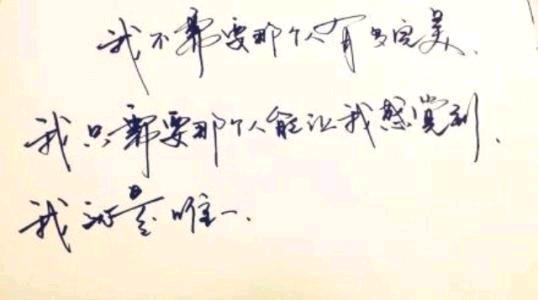 我不需要那个人有多完美.
我只需要那个人能让我感觉到.
我就是唯一.